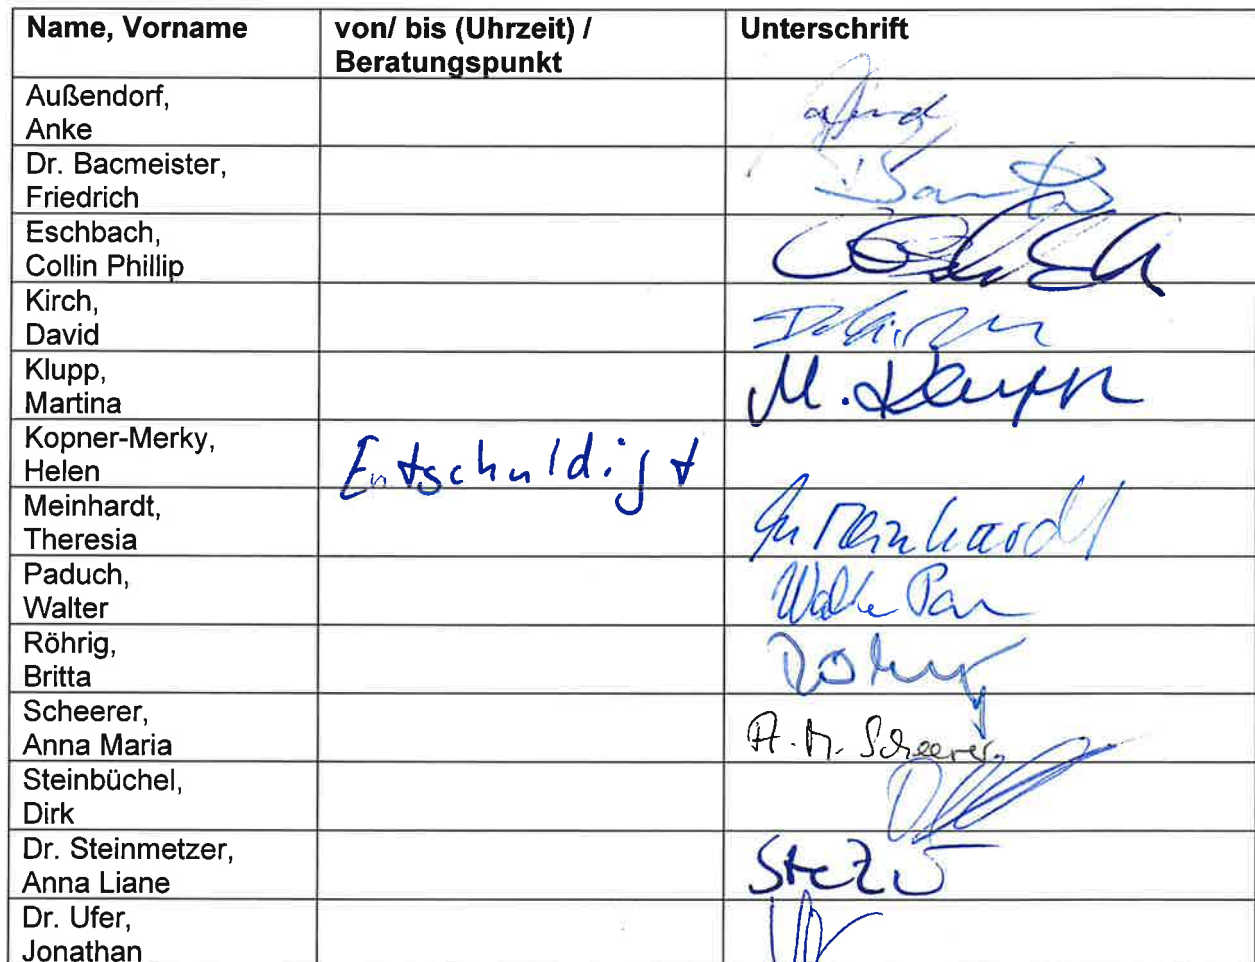 Name, Vorname
von/ bis (Uhrzeit) /
Beratungspunkt
Unterschrift
Außendorf,
Anke
Dr. Bacmeister,
Friedrich
Eschbach,
Collin Phillip
Kirch,
David
Klupp,
Martina
M. Klupp
Kopner-Merky,
Helen
Entschuldigt
Meinhardt,
Theresia
Meinhardt
Paduch,
Walter
Röhrig,
Britta
Scheerer,
Anna Maria
A. M. Scheerer
Steinbüchel,
Dirk
Dr. Steinmetzer,
Anna Liane
Dr. Ufer,
Jonathan